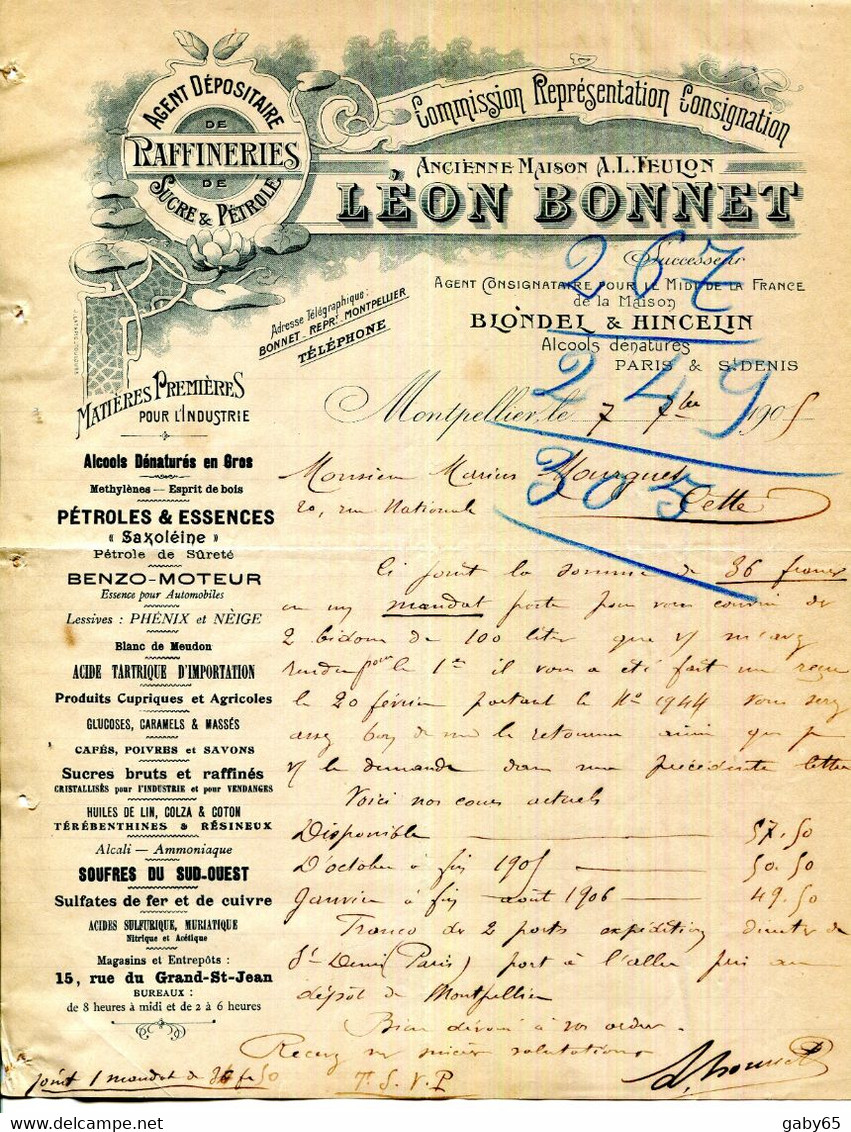 AGENT DÉPOSITAIRE
DE
RAFFINERIES
DE
SUCRE & PÉTROLE
Commission Représentation Consignation
ANCIENNE MAISON A.L. FEULON
LÉON BONNET
Successeur
AGENT CONSIGNATAIRE POUR LE MIDI DE LA FRANCE
de la Maison
BLONDEL & HINCELIN
Alcools dénaturés
PARIS & St DENIS
267
249
303
Adresse Télégraphique:
BONNET-REPRt MONTPELLIER
TÉLÉPHONE
Montpellier, le 7 7bre 1905
MATIÈRES PREMIÈRES
POUR L'INDUSTRIE
Alcools Dénaturés en Gros
Methylènes — Esprit de bois
PÉTROLES & ESSENCES
« Saxoléine »
Pétrole de Sûreté
BENZO-MOTEUR
Essence pour Automobiles
Lessives : PHÉNIX et NÈIGE
Blanc de Meudon
ACIDE TARTRIQUE D'IMPORTATION
Produits Cupriques et Agricoles
GLUCOSES, CARAMELS & MASSÉS
CAFÉS, POIVRES et SAVONS
Sucres bruts et raffinés
CRISTALLISÉS pour l'INDUSTRIE et pour VENDANGES
HUILES DE LIN, COLZA & COTON
TÉRÉBENTHINES & RÉSINEUX
Alcali — Ammoniaque
SOUFRES DU SUD-OUEST
Sulfates de fer et de cuivre
ACIDES SULFURIQUE, MURIATIQUE
Nitrique et Acétique
Magasins et Entrepôts :
15, rue du Grand-St-Jean
BUREAUX :
de 8 heures à midi et de 2 à 6 heures
Monsieur Marius Mourguet
20, rue Nationale Cette
Ci joint la somme de 36 francs
en un mandat poste pour vous couvrir de
2 bidons de 100 liter que v/ m'avez
rendu pour le 1er il vous a été fait un reçu
le 20 février portant le No 1944 Vous serez
assez bon de me le retourner ainsi que je
v/ le demande dans ma précédente lettre
Voici nos cours actuels
Disponible — 57.50
D'octobre à fin 1905 — 50.50
Janvier à fin août 1906 — 49.50
Franco de 2 ports expédition directe de
St Denis (Paris) port à l'aller pris au
dépôt de Montpellier
Bien dévoué à vos ordres.
Recevez nos sincères salutations
joint 1 mandat de 36 f 50
T.S.V.P
gaby65